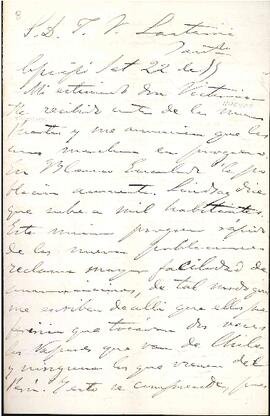 S. D. J. V. Lastarria
Santo
Copiapó Set 22 de
Mi estimado don Victorino
He recibido carta de
y me anuncia que las
cosas marchan en progreso
en Blanco Encalada la po-
blacion aumenta.
que sube a mil habitantes.
Este mismo progreso rapido
de las nuevas poblaciones
reclama mayor facilidad de
comunicaciones, de tal modo que
me escriben de alli que ellos pre-
feririan que tocaran dos veces
los vapores que van de Chile
y ninguna los que vienen del
Perú. I esto se comprende, pues